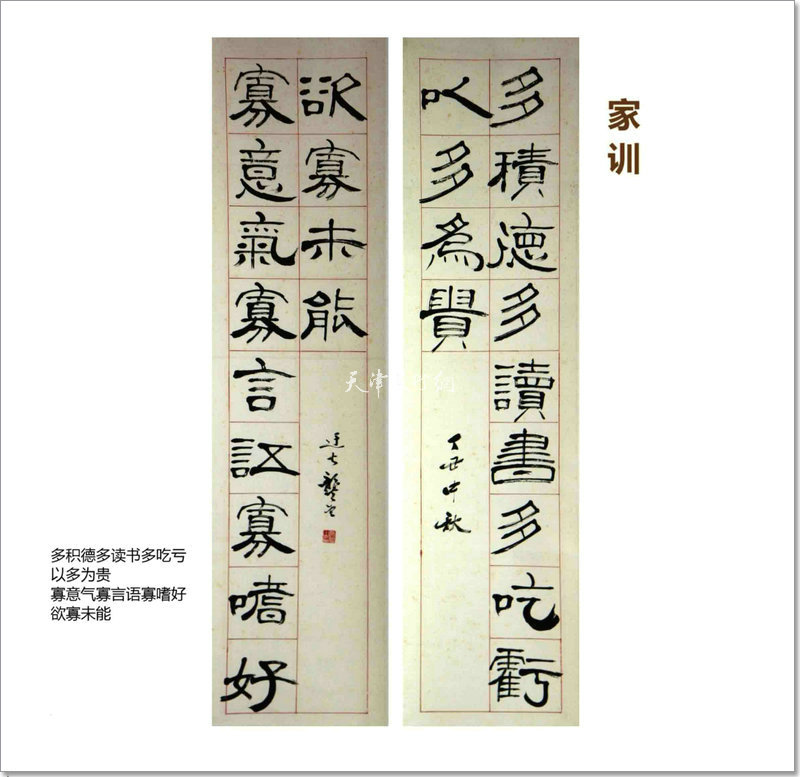 家训
多積德多讀書多吃虧
以多為貴
丁丑中秋
寡意氣寡言語寡嗜好
欲寡未能
龔望
天津 網
多积德多读书多吃亏
以多为贵
寡意气寡言语寡嗜好
欲寡未能